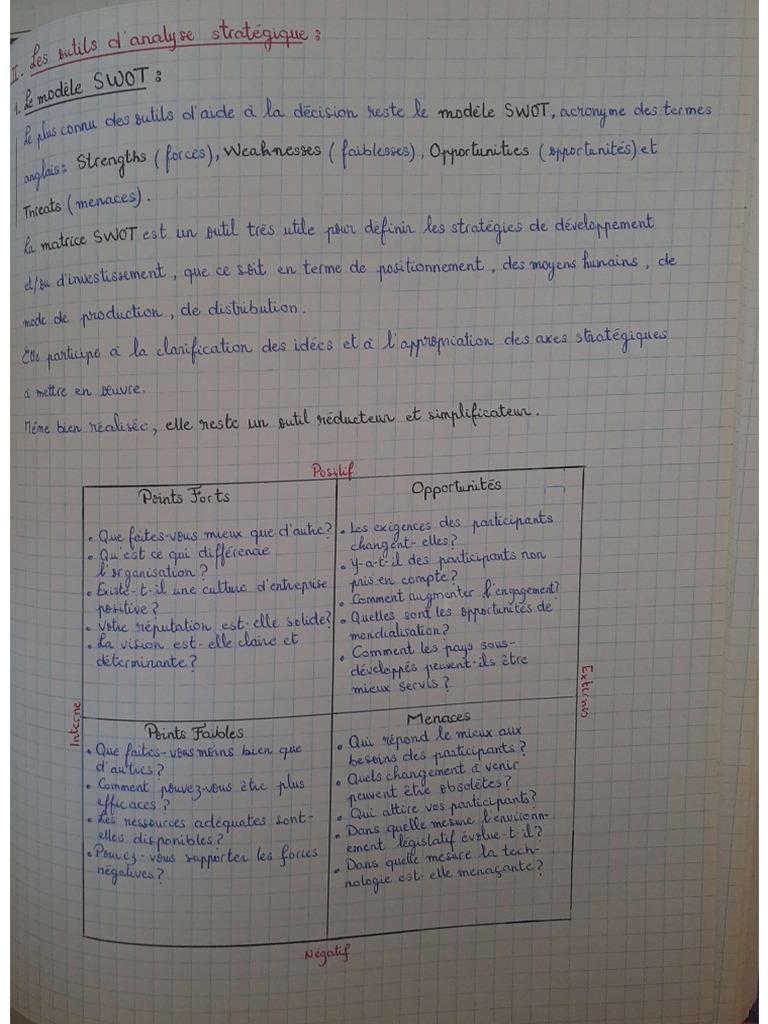 II. Les outils d'analyse stratégique :
1. Le modèle SWOT :
Le plus connu des outils d'aide à la décision reste le modèle SWOT, acronyme des termes
anglais: Strengths (forces), Weaknesses (faiblesses), Opportunities (opportunités) et
Threats (menaces).
La matrice SWOT est un outil très utile pour définir les stratégies de développement
et/ou d'investissement, que ce soit en terme de positionnement, des moyens humains, de
mode de production, de distribution.
Elle participe à la clarification des idées et à l'appropriation des axes stratégiques
à mettre en oeuvre.
Même bien réalisée, elle reste un outil réducteur et simplificateur.
Positif
Interne
Points Forts
• Que faites-vous mieux que d'autre?
• Qu'est ce qui différencie
l'organisation ?
• Existe-t-il une culture d'entreprise
positive ?
• Votre réputation est-elle solide?
• La vision est-elle claire et
déterminante ?
Opportunités
• Les exigences des participants
changent-elles?
• Y-a-t-il des participants non
pris en compte?
• Comment augmenter l'engagement?
• Quelles sont les opportunités de
mondialisation?
• Comment les pays sous-
développés peuvent-ils être
mieux servis ?
Externe
Points Faibles
• Que faites-vous moins bien que
d'autres ?
• Comment pouvez-vous être plus
efficaces ?
• Les ressources adéquates sont-
elles disponibles ?
• Pouvez-vous supporter les forces
négatives ?
Menaces
• Qui répond le mieux aux
besoins des participants ?
• Quels changement à venir
peuvent être obsolètes?
• Qui attire vos participants?
• Dans quelle mesure l'environn-
ement législatif évolue-t-il?
• Dans quelle mesure la tech-
nologie est-elle menaçante ?
Négatif